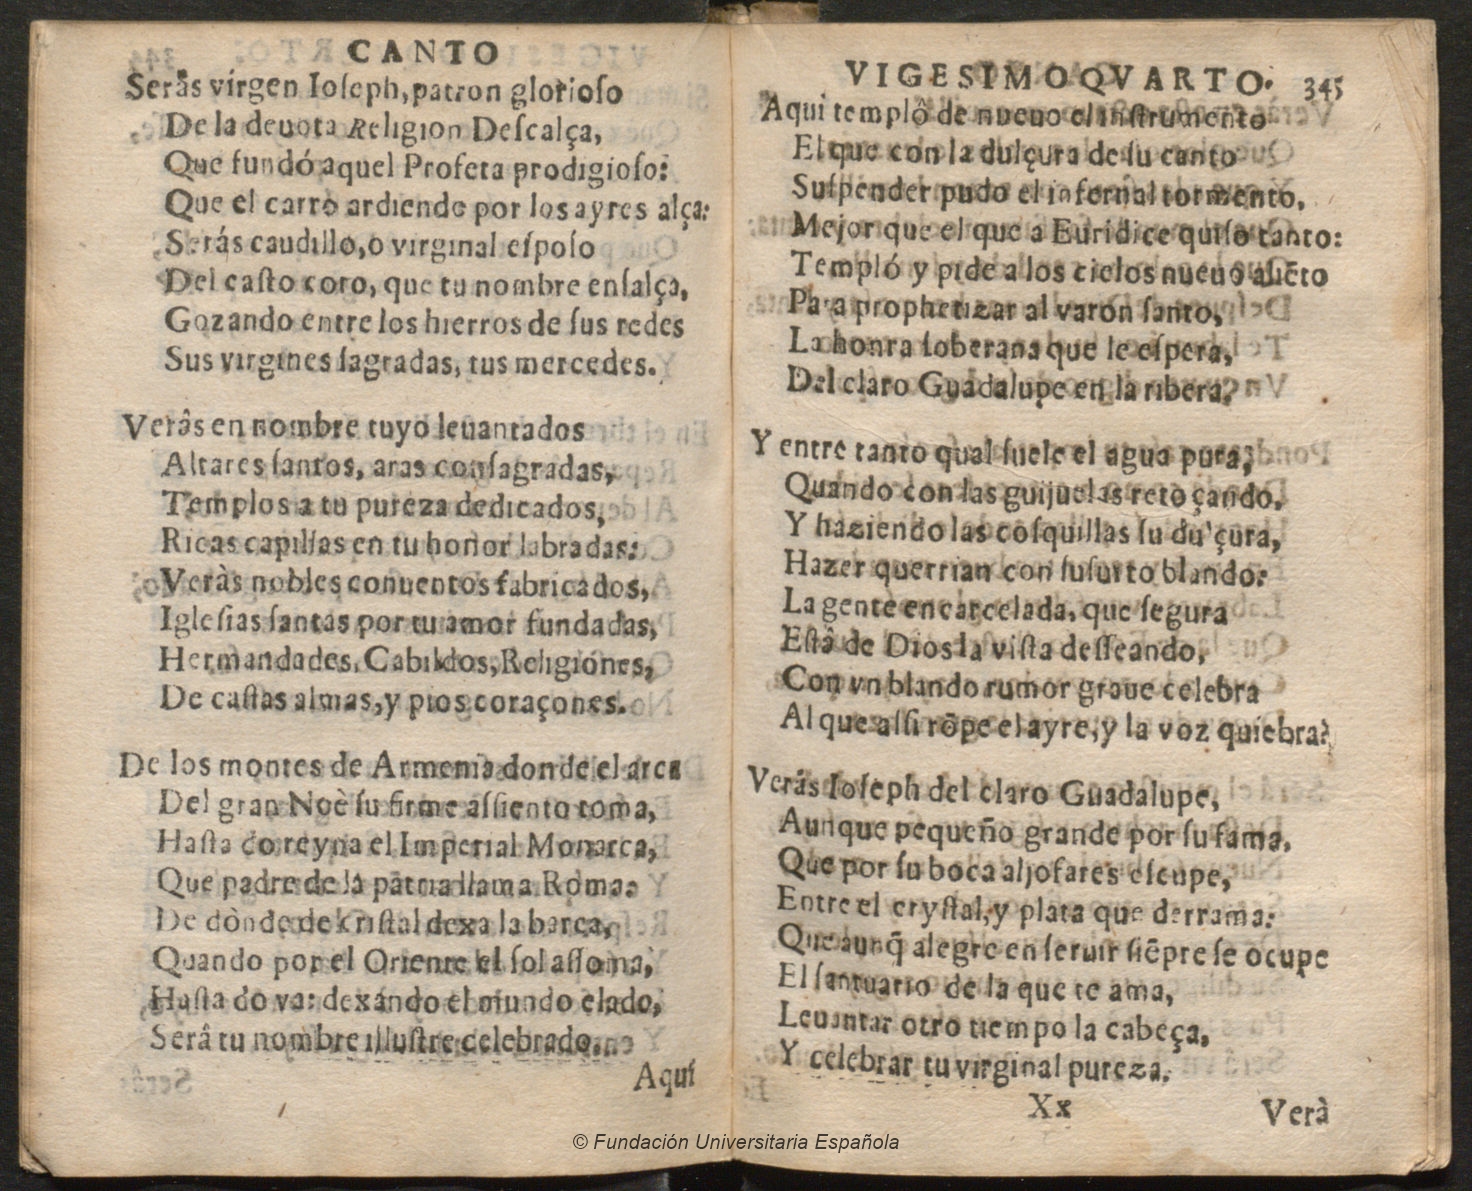 CANTO
Serâs virgen Ioſeph, patron glorioſo
De la deuota Religion Deſcalça,
Que fundó aquel Profeta prodigioſo:
Que el carro ardiendo por los ayres alça:
Serás caudillo, o virginal eſpoſo
Del caſto coro, que tu nombre enſalça,
Gozando entre los hierros de ſus redes
Sus virgines ſagradas, tus mercedes.
Verâs en nombre tuyo leuantados
Altares ſantos, aras conſagradas,
Templos a tu pureza dedicados,
Ricas capillas en tu honor labradas:
Veràs nobles conuentos fabricados,
Igleſias ſantas por tu amor fundadas,
Hermandades, Cabildos, Religiones,
De caſtas almas, y pios coraçones.
De los montes de Armenia donde el arca
Del gran Noè ſu firme aſsiento toma,
Haſta do reyna el Imperial Monarca,
Que padre de la patria llama Roma:
De dònde de criſtal dexa la barca,
Quando por el Oriente el ſol aſſoma,
Haſta do va: dexando el mundo elado,
Serâ tu nombre illuſtre celebrado.
Aquí
VIGESIMOQVARTO. 345
Aqui templò de nueuo el inſtrumento
El que con la dulçura de ſu canto
Suſpender pudo el infernal tormento,
Mejor que el que a Euridice quiſo tanto:
Templó y pide a los cielos nueuo aliẽto
Para prophetizar al varon ſanto,
La honra ſoberana que le eſpera,
Del claro Guadalupe en la ribera.
Y entre tanto qual ſuele el agua pura,
Quando con las guijuelas retoçando,
Y haziendolas coſquillas ſu dulçura,
Hazer querrian con ſuſurro blando:
La gente encarcelada, que ſegura
Eſtâ de Dios la viſta deſſeando,
Con vn blando rumor graue celebra
Al que aſſi rõpe el ayre, y la voz quiebra.
Verás Ioſeph del claro Guadalupe,
Aunque pequeño grande por ſu fama,
Que por ſu boca aljofares eſcupe,
Entre el cryſtal, y plata que derrama:
Que aunq̃ alegre en ſeruir ſiẽpre ſe ocupe
El ſantuario de la que te ama,
Leuantar otro tiempo la cabeça,
Y celebrar tu virginal pureza.
Xx Verà
© Fundación Universitaria Española